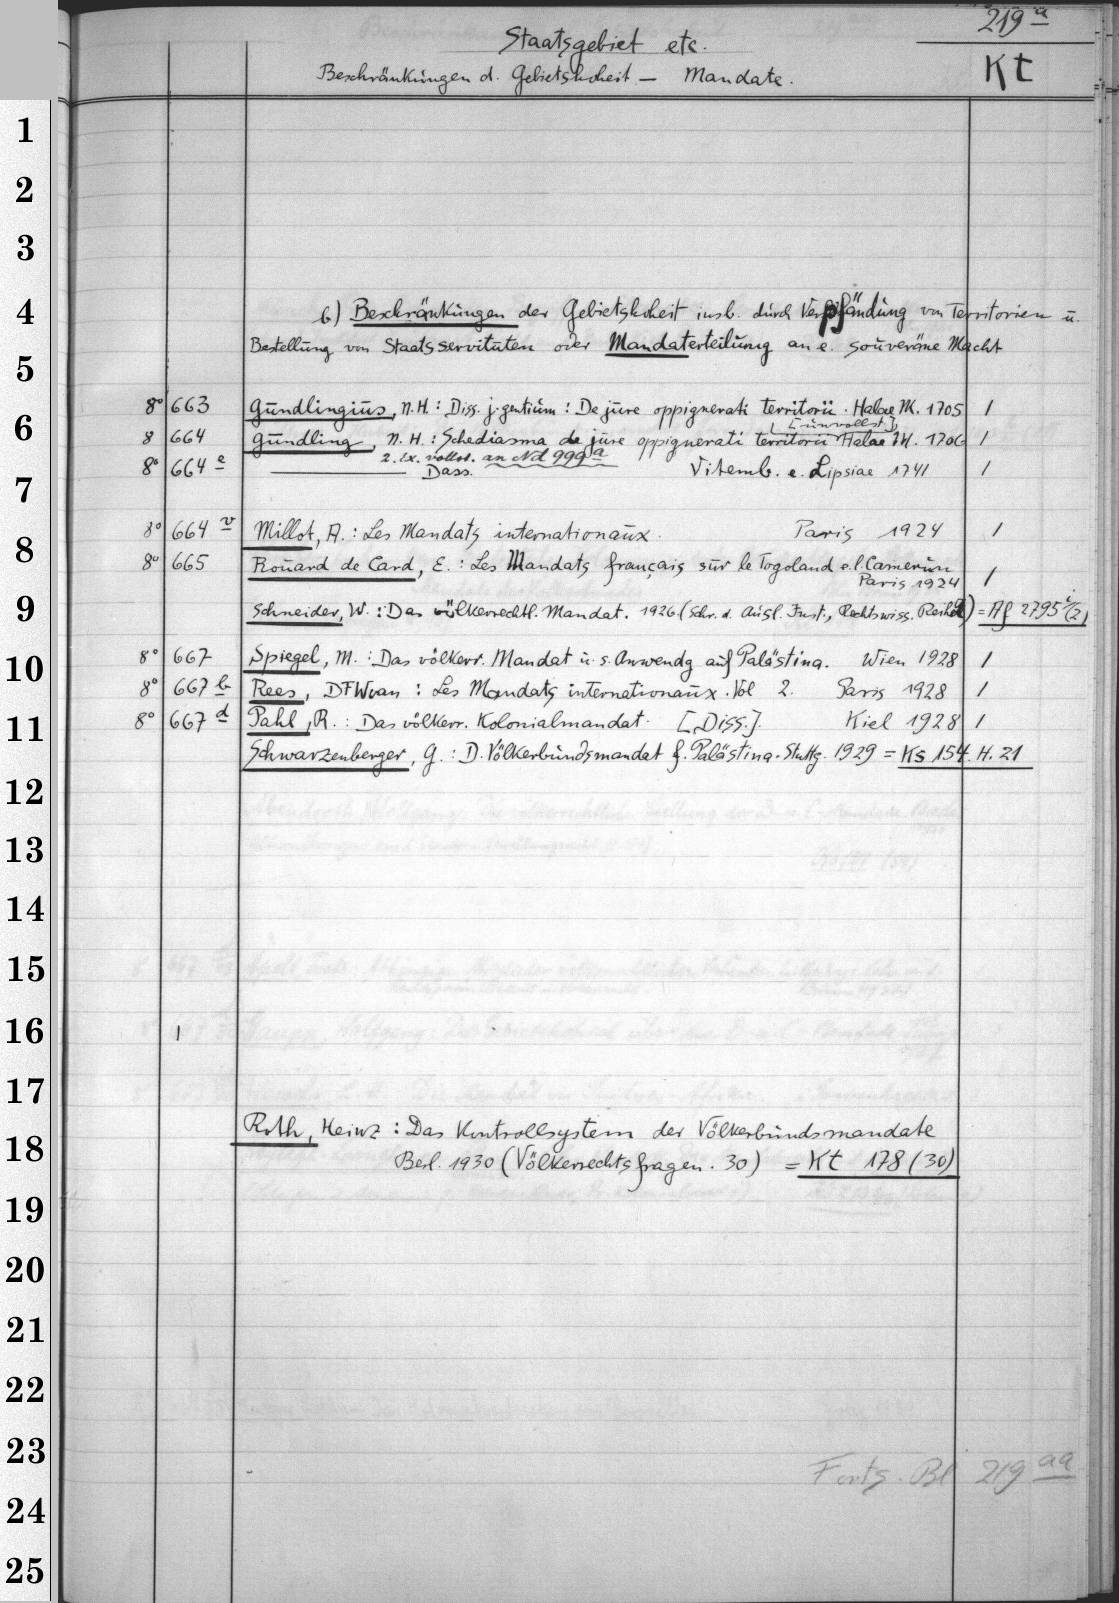 219 a
Staatsgebiet etc.
Kt
Beschränkungen d. Gebietshoheit — Mandate.
1
2
3
4
b) Beschränkungen der Gebietshoheit insb. durch Verpfändung von Territorien u.
Bestellung von Staatsservituten oder Mandaterteilung an e. souveräne Macht
5
8° 663 Gundlingius, N.H.: Diss. j. gentium: De jure oppignerati territorii. Halae M. 1705 1
6
[unvollst.]
8 664 Gundling, N. H.: Schediasma de jure oppignerati territorii Halae M. 1706 1
2. Ex. vollst. an Nd 999 a
8° 664 e Dass. Vitemb. e. Lipsiae 1741 1
7
8° 664 v Millot, A.: Les Mandats internationaux. Paris 1924 1
8
8° 665 Rouard de Card, E.: Les Mandats français sur le Togoland e.l. Camerun
Paris 1924 1
9
Schneider, W.: Das völkerrechtl. Mandat. 1926 (Schr. d. Ausl. Inst., Rechtswiss. Reihe 2) = Af 2795 i (2)
10
8° 667 Spiegel, M.: Das völkerr. Mandat u. s. Anwendg auf Palästina. Wien 1928 1
8° 667 b Rees, DFWvan: Les Mandats internationaux. Vol 2. Paris 1928 1
11
8° 667 d Pahl, R.: Das völkerr. Kolonialmandat. [Diss.]. Kiel 1928 1
Schwarzenberger, G.: D. Völkerbundsmandat f. Palästina. Stuttg. 1929 = Ks 154. H. 21
12
13
14
15
16
17
Roth, Heinz: Das Kontrollsystem der Völkerbundsmandate
18
Berl. 1930 (Völkerrechtsfragen. 30) = Kt 178 (30)
19
20
21
22
23
Forts. Bl 219 aa
24
25